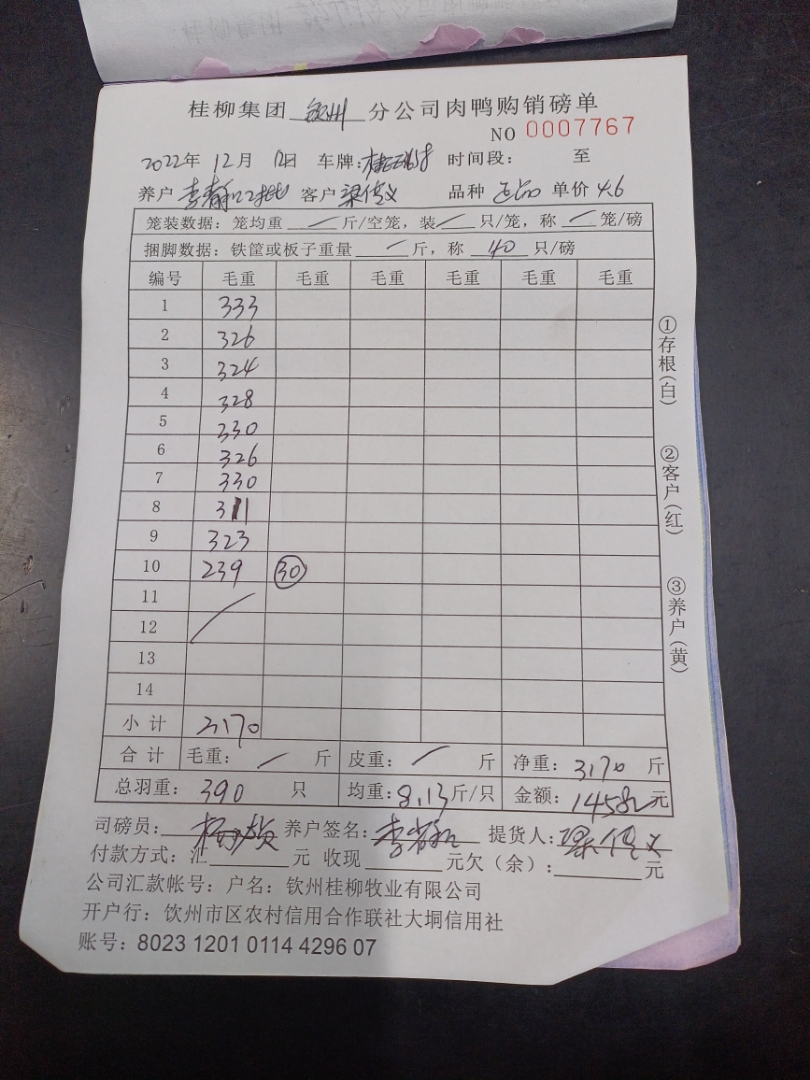 桂柳集团 钦州 分公司肉鸭购销磅单
NO 0007767
2022年 12月 12日 车牌: 时间段: 至
养户 李静 客户 梁信义 品种 正品 单价 4.6
笼装数据: 笼均重 / 斤/空笼, 装 / 只/笼, 称 / 笼/磅
捆脚数据: 铁筐或板子重量 / 斤, 称 40 只/磅
编号 毛重 毛重 毛重 毛重 毛重 毛重
1 333
2 326
3 324
4 328
5 330
6 326
7 330
8 311
9 323
10 239 30
11
12
13
14
小计 3170
合计 毛重: / 斤 皮重: / 斤 净重: 3170 斤
总羽重: 390 只 均重: 8.13 斤/只 金额: 14582 元
司磅员: 养户签名: 李 提货人: 梁信义
付款方式: 汇 元 收现 元欠(余): 元
公司汇款帐号: 户名: 钦州桂柳牧业有限公司
开户行: 饮州市区农村信用合作联社大垌信用社
账号: 8023 1201 0114 4296 07
①存根(白)
②客户(红)
③养户(黄)